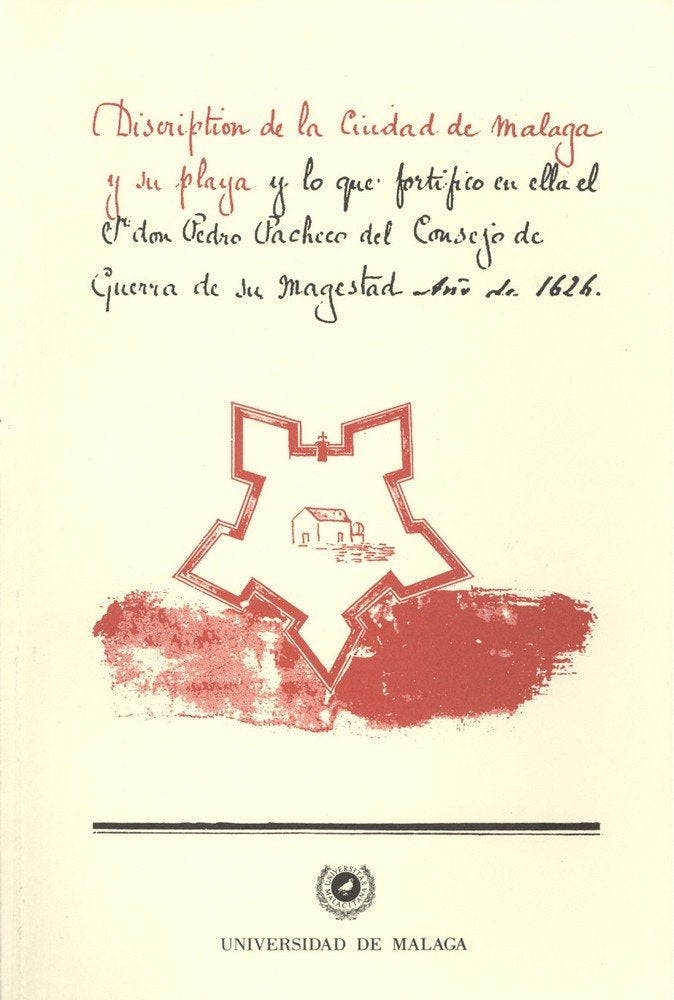 Discription de la Ciudad de Malaga
y su playa y lo que fortifico en ella el
Sr. don Pedro Pacheco del Consejo de
Guerra de su Magestad Año de 1626.
UNIVERSITAS
MALACITANA
UNIVERSIDAD DE MALAGA